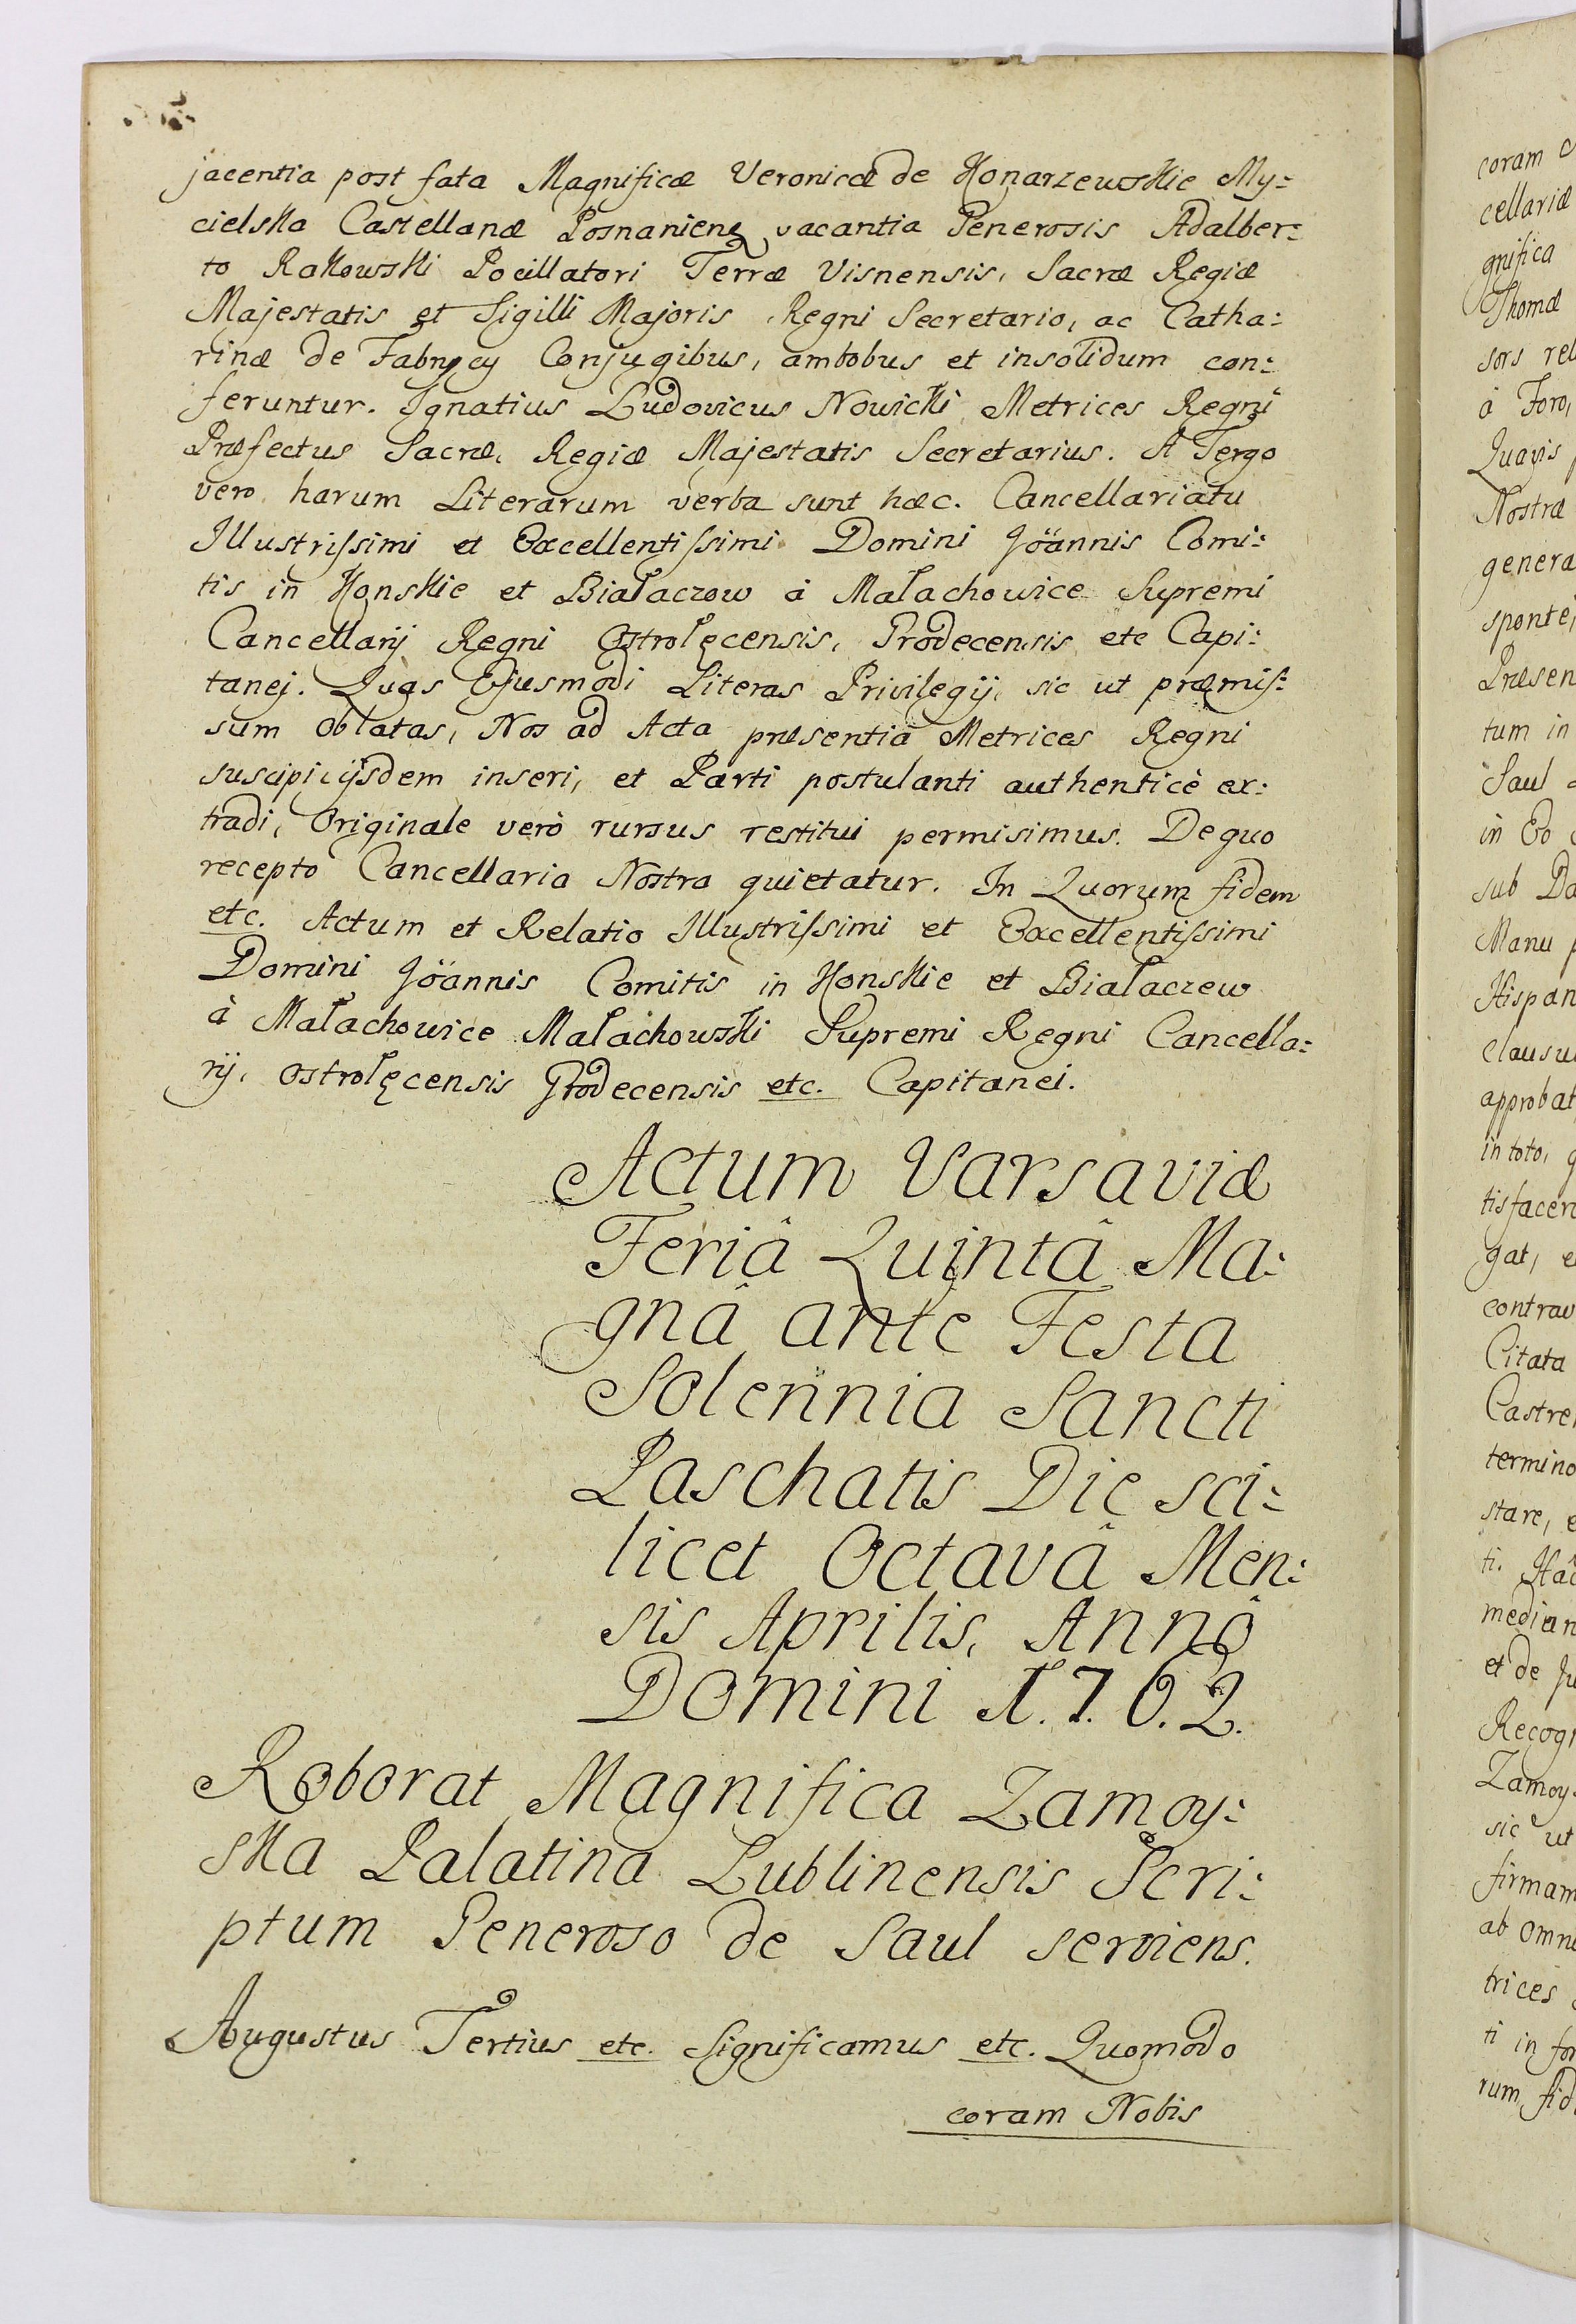 jacentia post fata Magnificæ Veronicæ de Konarzewskie My:
cielska Castellanæ Posnaniens vacantia Generosis Adalber:
to Rakowski Pocillatori Terræ Visnensis, Sacræ Regiæ
Majestatis et Sigilli Majoris Regni Secretario, ac Catha:
rinæ de Fabrycy Conjugibus, ambobus et insolidum con:
feruntur. Ignatius Ludovicus Nowicki Metrices Regni
Præfectus Sacræ, Regiæ Majestatis Secretarius. A Tergo
vero harum Literarum verba sunt hæc. Cancellariatu
Illustrissimi et Excellentissimi Domini Joannis Comi:
tis in Konskie et Białaczow à Małachowice Supremi
Cancellarij Regni Ostrołęcensis, Grodecensis etc Capi:
tanej. Quas Ejusmodi Literas Privilegij, sic ut præmis:
sum oblatas, Nos ad Acta præsentia Metrices Regni
suscipi, ijsdem inseri, et Parti postulanti authenticè ex:
tradi, Originale verò rursus restitui permisimus. De quo
recepto Cancellaria Nostra quietatur. In Quorum fidem
etc. Actum et Relatio Illustrissimi et Excellentissimi
Domini Joannis Comitis in Konskie et Białaczew
à Małachowice Małachowski Supremi Regni Cancella:
rij, Ostrołęcensis Grodecensis etc. Capitanei.
Actum Varsaviæ
Feriâ Quintâ Ma:
gnâ ante Festa
Solennia Sancti
Paschatis Die sci:
licet Octavâ Men:
sis Aprilis, Annô
Domini 1.7.6.2.
Roborat Magnifica Zamoy:
ska Palatina Lublinensis Scri:
ptum Generoso de Saul serviens.
Augustus Tertius etc. Significamus etc. Quomodo
coram Nobis
coram
cellariæ
gnifica
Thomæ
sors rel
à Foro,
Quavis
Nostræ
genera
sponte,
Præsen
tum in
Saul
in Eo
sub Da
Manu
Hispan
clausu
approbat
in toto,
tisfacen
gat, e
contrav
Citata
Castre
termino
stare, e
ti. Hâc
median
et de Ju
Recogn
Zamoy
sic ut
firmam
ab omni
trices
ti in for
rum fid